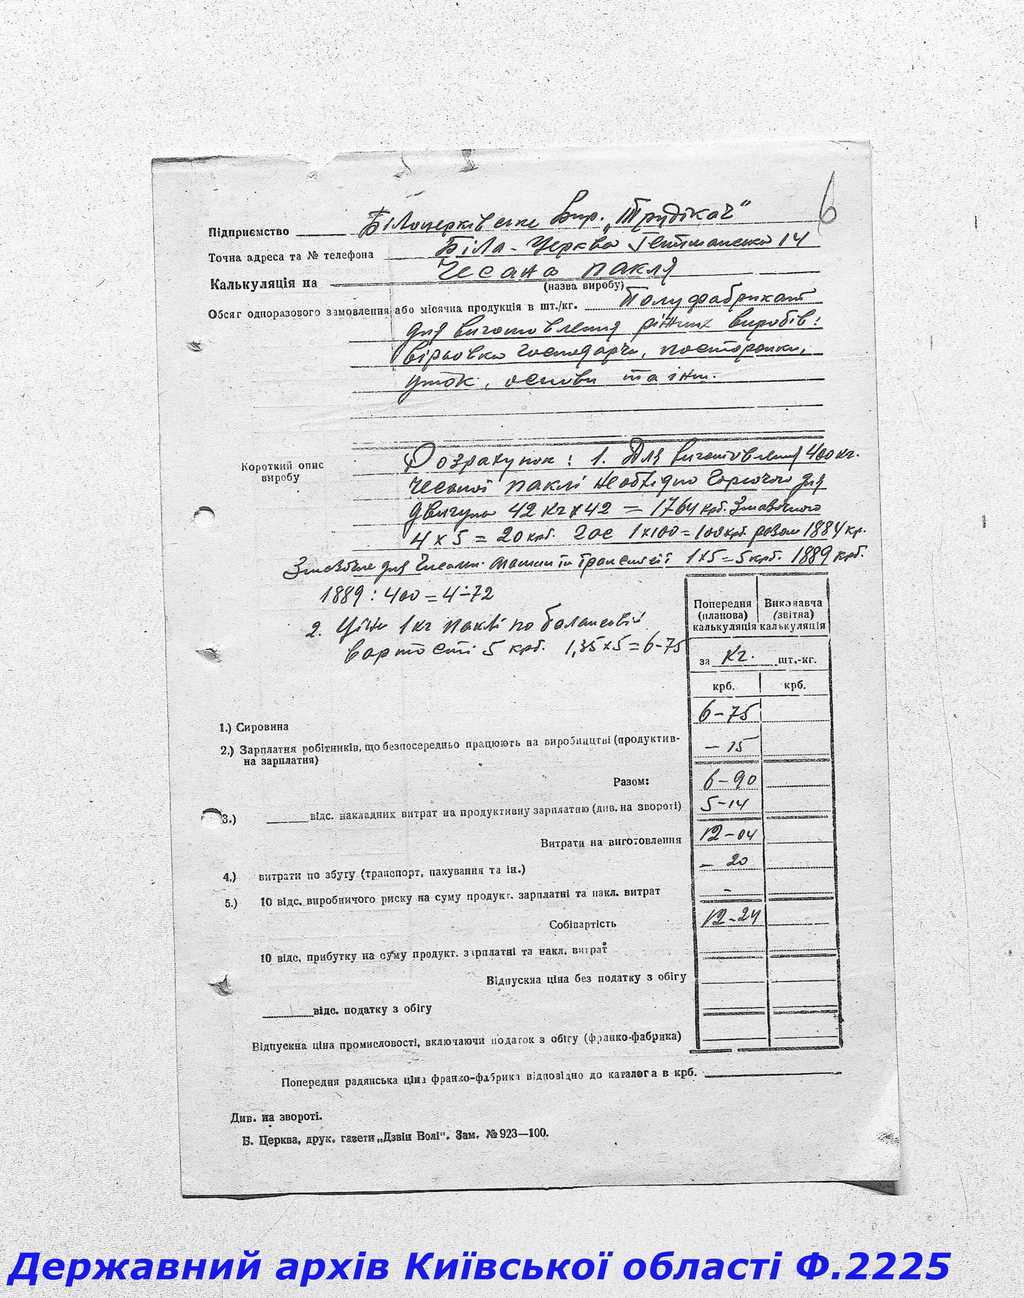 6
Підприємство Білоцерківське Вир. „Трудікач"
Точна адреса та № телефона Біла-Церква Гетманська 14
Калькуляція на Чесана пакля
(назва виробу)
Обсяг одноразового замовлення або місячна продукція в шт./кг. Полуфабрикат
для виготовлення ріжних виробів:
вірьовка господарча, посторонки,
уток, основи та інш.
Короткий опис
виробу
Розрахунок: 1. Для виготовлення 400 кг.
чесаної паклі необхідно горючого для
двигуна 42 кг х 42 = 1764 крб. Змазочного
4 х 5 = 20 крб. гас 1х100=100 крб. разом 1884 кр.
Змазочне для чесальн. машин і трансмісії 1х5=5 крб. 1889 кр.
1889 : 400 = 4-72
2. Ціна 1 кг паклі по балансовій
вартості 5 крб. 1,35 х 5 = 6-75
Попередня (планова) калькуляція
Виконавча (звітна) калькуляція
за кг. шт.-кг.
крб. крб.
1.) Сировина 6-75
2.) Зарплатня робітників, що безпосередньо працюють на виробництві (продуктив-
на зарплатня) -15
Разом: 6-90
3.) відс. накладних витрат на продуктивну зарплатню (див. на звороті) 5-14
Витрати на виготовлення 12-04
4.) витрати по збуту (транспорт, пакування та ін.) -20
5.) 10 відс. виробничого риску на суму продукт. зарплатні та накл. витрат -
Собівартість 12-24
10 відс. прибутку на суму продукт. зарплатні та накл. витрат
Відпускна ціна без податку з обігу
відс. податку з обігу
Відпускна ціна промисловості, включаючи податок з обігу (франко-фабрика)
Попередня радянська ціна франко-фабрика відповідно до каталога в крб.
Див. на звороті.
Б. Церква, друк. газети „Дзвін Волі". Зам. № 923—100.
Державний архів Київської області Ф.2225